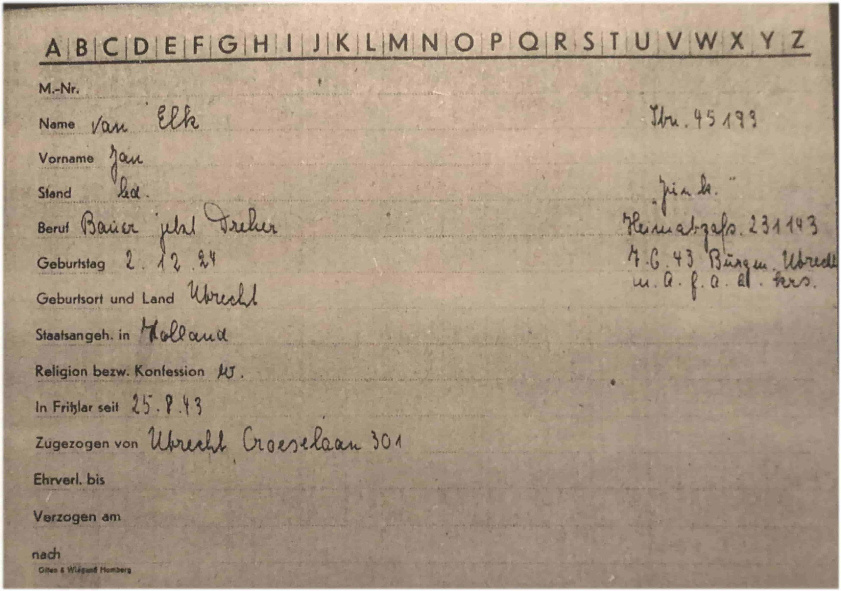 A B C D E F G H I J K L M N O P Q R S T U V W X Y Z
M.-Nr.
Name van Elk
Vorname Jan
Stand led.
Beruf Bauer jetzt Dreher
Geburtstag 2.12.24
Geburtsort und Land Utrecht
Staatsangeh. in Holland
Religion bezw. Konfession
In Fritzlar seit 25.8.43
Zugezogen von Utrecht Croeselaan 301
Ehrverl. bis
Verzogen am
nach
231143
43 Bürgerm. Utrecht